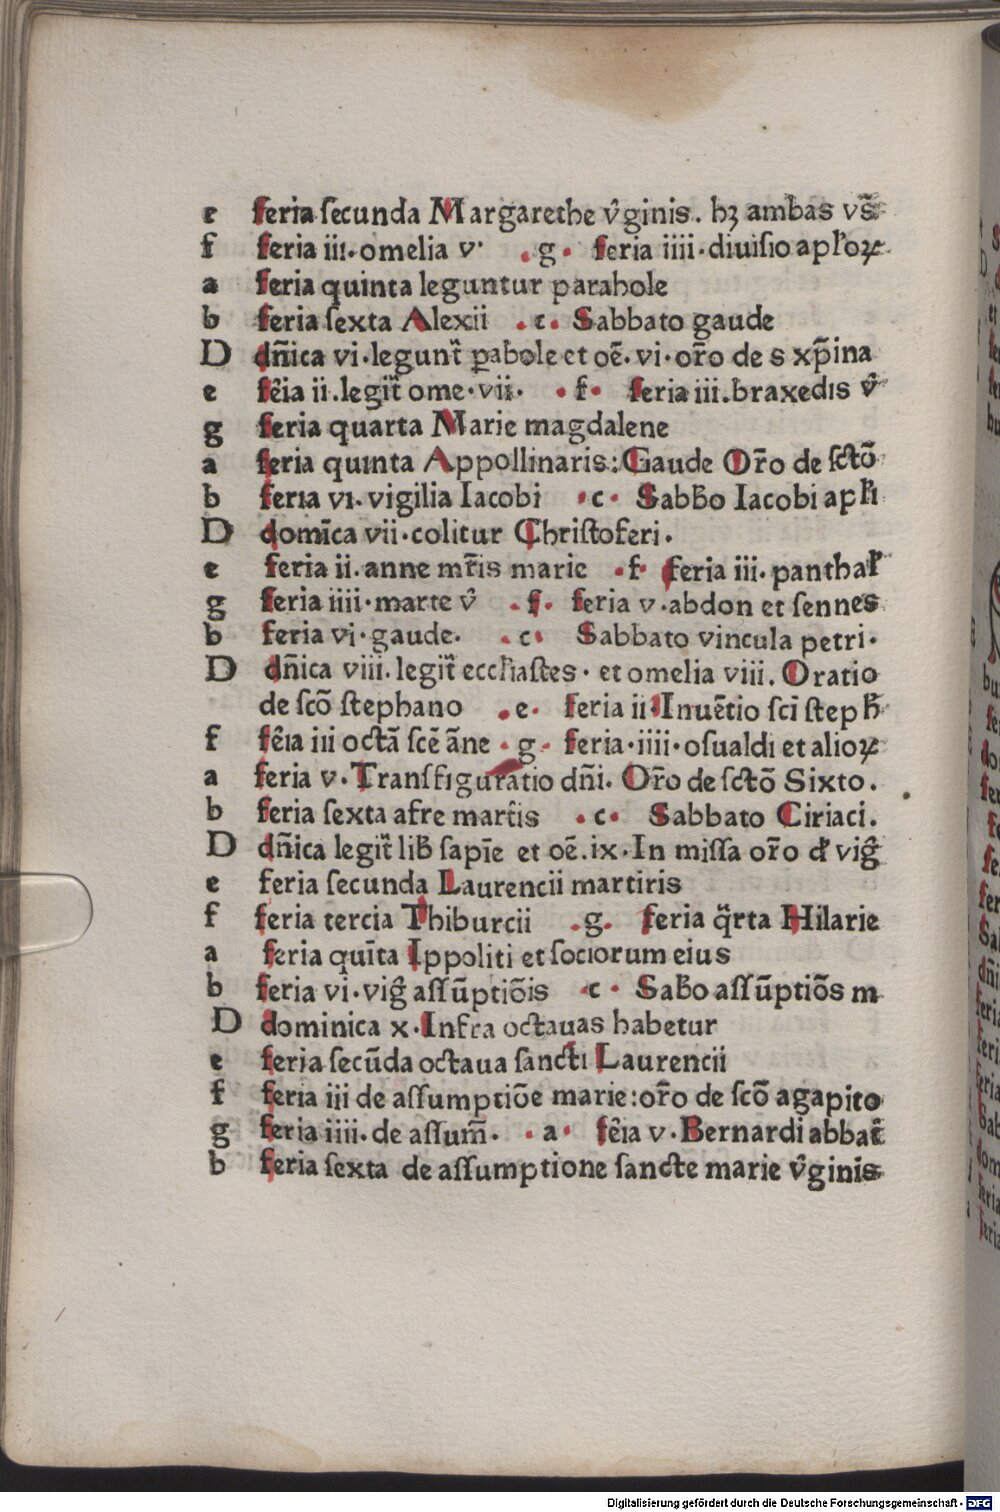 e feria secunda Margarethe v̂ginis. hʒ ambas vs̃
f feria iii. omelia v· .g. feria iiii. diuisio apl'oꝝ
a feria quinta leguntur parabole
b feria sexta Alexii .c. Sabbato gaude
D dñica vi. legunt̃ ꝑabole et oẽ. vi. or̃o de s xp̃ina
e fẽia ii. legit̃ ome. vii. .f. feria iii. braxedis v̂
g feria quarta Marie magdalene
a feria quinta Appollinaris: Gaude Or̃o de sctõ
b feria vi. vigilia Iacobi .c. Sabb̃o Iacobi apl'i
D domĩca vii. colitur Christoferi.
e feria ii. anne mr̃is marie .f. feria iii. panthal'
g feria iiii. marte v̂ .f. feria v. abdon et sennes
b feria vi. gaude. .c. Sabbato vincula petri.
D dñica viii. legit̃ eccl'iastes. et omelia viii. Oratio
de scõ stephano .e. feria ii Inuẽtio sci step h̃
f fẽia iii octã scẽ ãne .g. feria. iiii. osualdi et alioꝝ
a feria v. Transfiguratio dñi. Or̃o de sctõ Sixto.
b feria sexta afre martis .c. Sabbato Ciriaci.
D dñica legit̃ lib̃ sapiẽ et oẽ. ix. In missa or̃o d' vig̃
e feria secunda Laurencii martiris
f feria tercia Thiburcii .g. feria q̃rta Hilarie
a feria quĩta Ippoliti et sociorum eius
b feria vi. vig̃ assũptiõis .c. Sab̃o assũptiõs m
D dominica x. Infra octauas habetur
e feria secũda octaua sancti Laurencii
f feria iii de assumptiõe marie: or̃o de scõ agapito
g feria iiii. de assum̃. .a. fẽia v. Bernardi abbat̃
b feria sexta de assumptione sancte marie v̂ginis
Digitalisierung gefördert durch die Deutsche Forschungsgemeinschaft - DFG